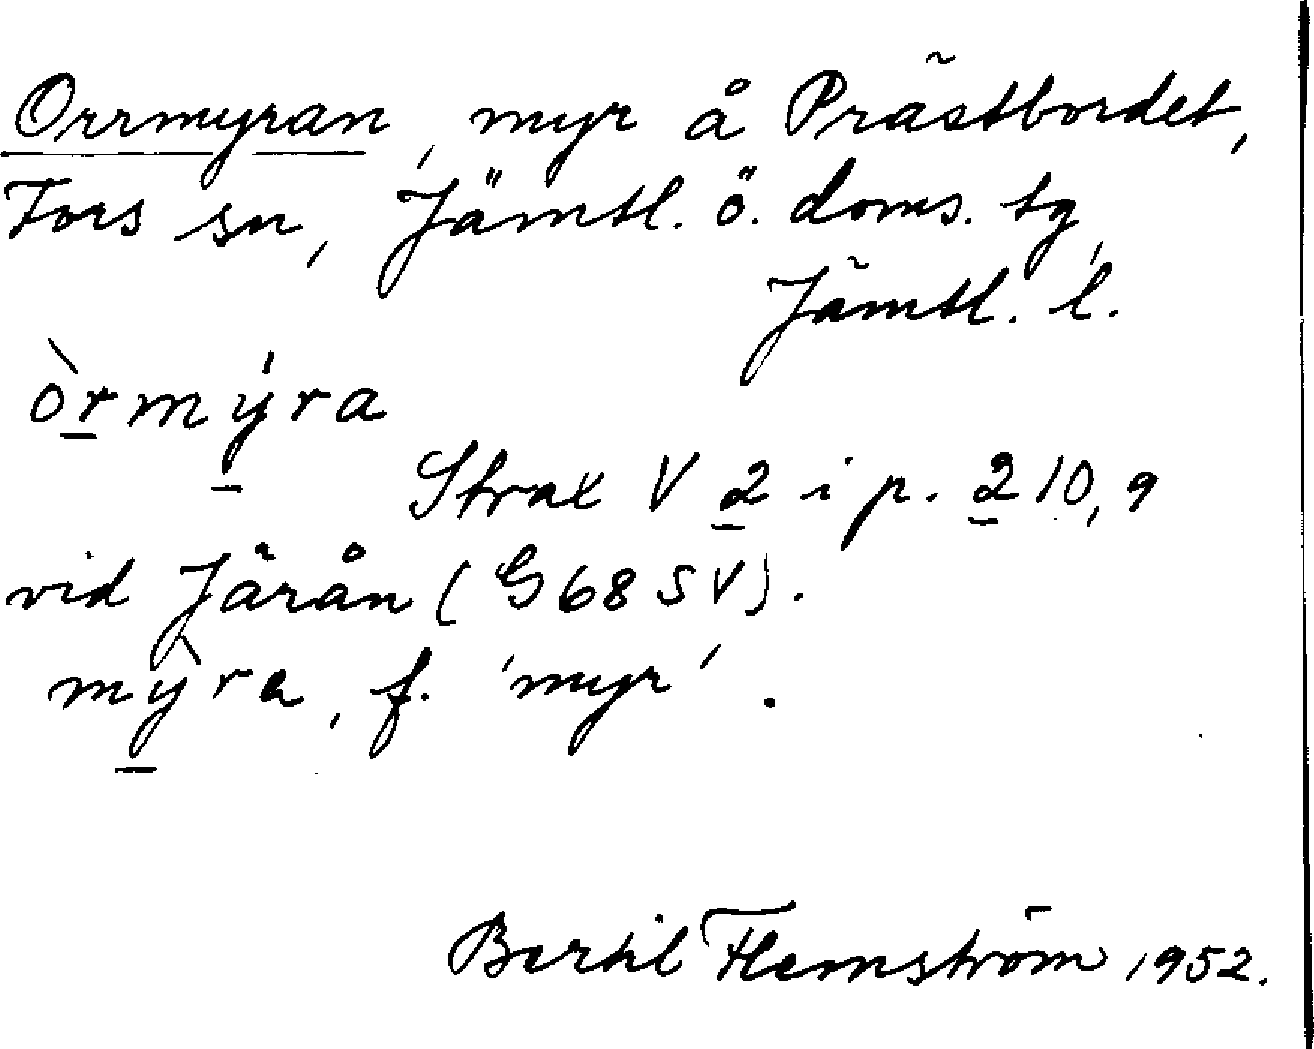 Orrmyran, myr å Prästbordet,
Fors sn, Jämtl. ö. doms. tg,
Jämtl. l.
òrmýra
Strax V 2 i p. 210,9
vid Järån (G68SV).
mỳra, f. 'myr'.
Bertil Flemström 1952.